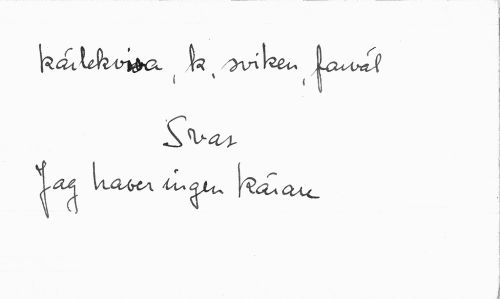 kärlekvisa, k. sviken, farväl
Svar
Jag haver ingen kärare